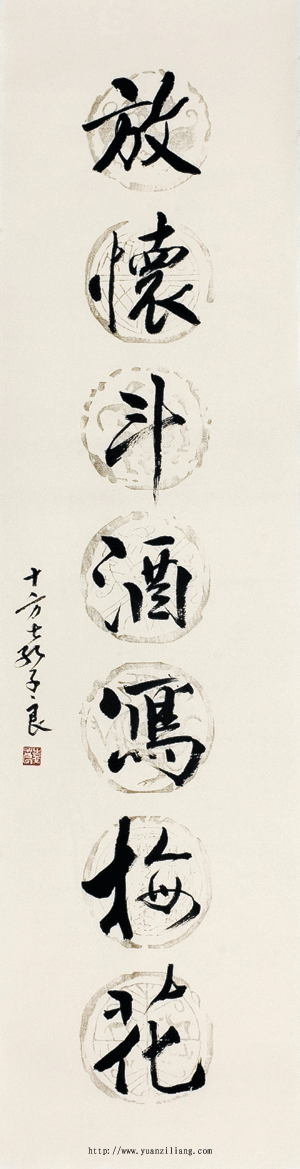 放懷斗酒寫梅花
十方士袁子良
http://www.yuanziliang.com